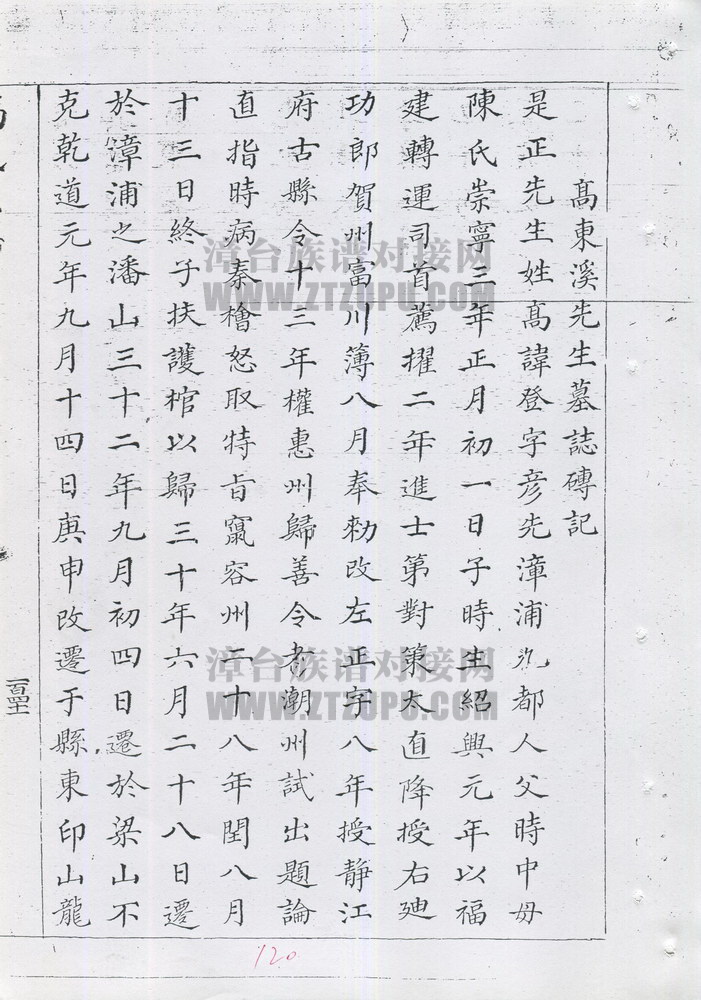 高東溪先生墓誌磚記
是正先生姓高諱登字彥先漳浦九都人父時中毋
陳氏崇寧三年正月初一日子時生紹興元年以福
建轉運司首薦擢二年進士第對策太直降授右廸
功郎賀州富川簿八月奉勑改左正字八年授靜江
府古縣令十三年權惠州歸善令考潮州試出題論
直指時病秦檜怒取特旨竄容州二十八年閏八月
十三日終子扶護棺以歸三十年六月二十八日遷
於漳浦之潘山三十二年九月初四日遷於梁山不
克乾道元年九月十四日庚申改遷于縣東印山龍
漳台族谱对接网
WWW.ZTZUPU.COM
漳台族谱对接网
WWW.ZTZUPU.COM
120